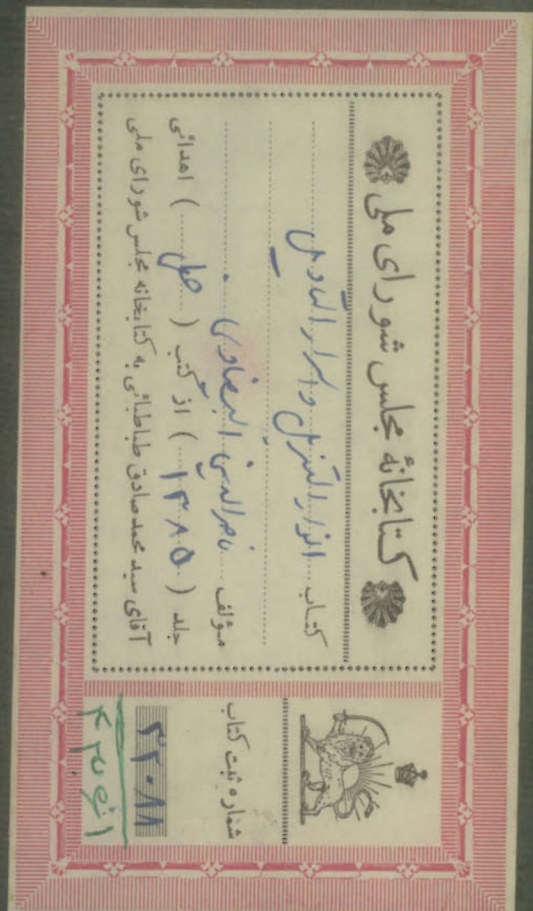 کتابخانهٔ مجلس شورای ملی
کتاب انوار التنزیل و اسرار التأویل
مؤلف ناصرالدین البیضاوی
جلد ( ۱۳۸۵ ) از کتب ( خطی ) اهدائی
آقای سید محمد صادق طباطبائی به کتابخانه مجلس شورای ملی
شماره ثبت کتاب